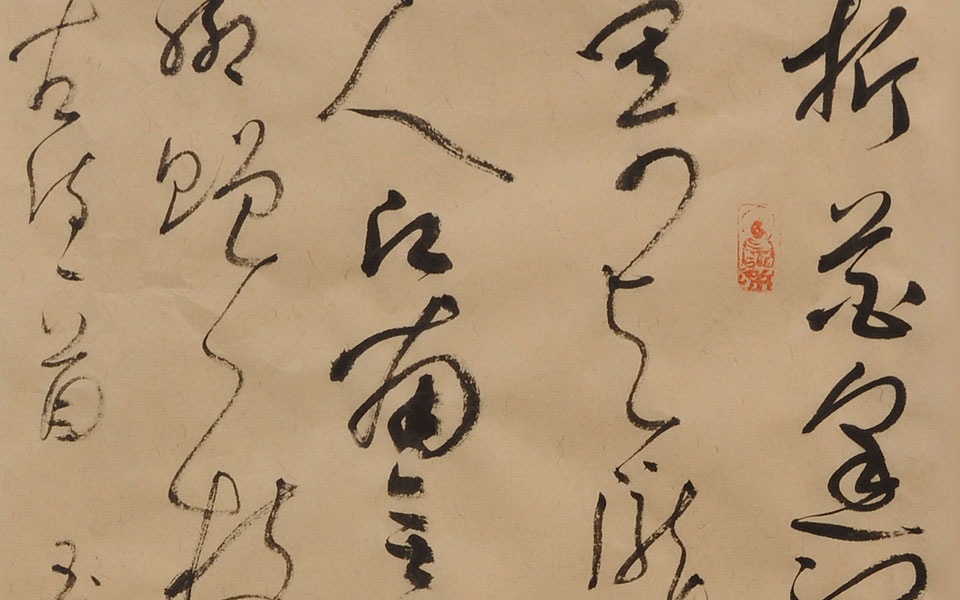 折花逢
寄与隴
人江南無
聊贈一枝
古詩一首